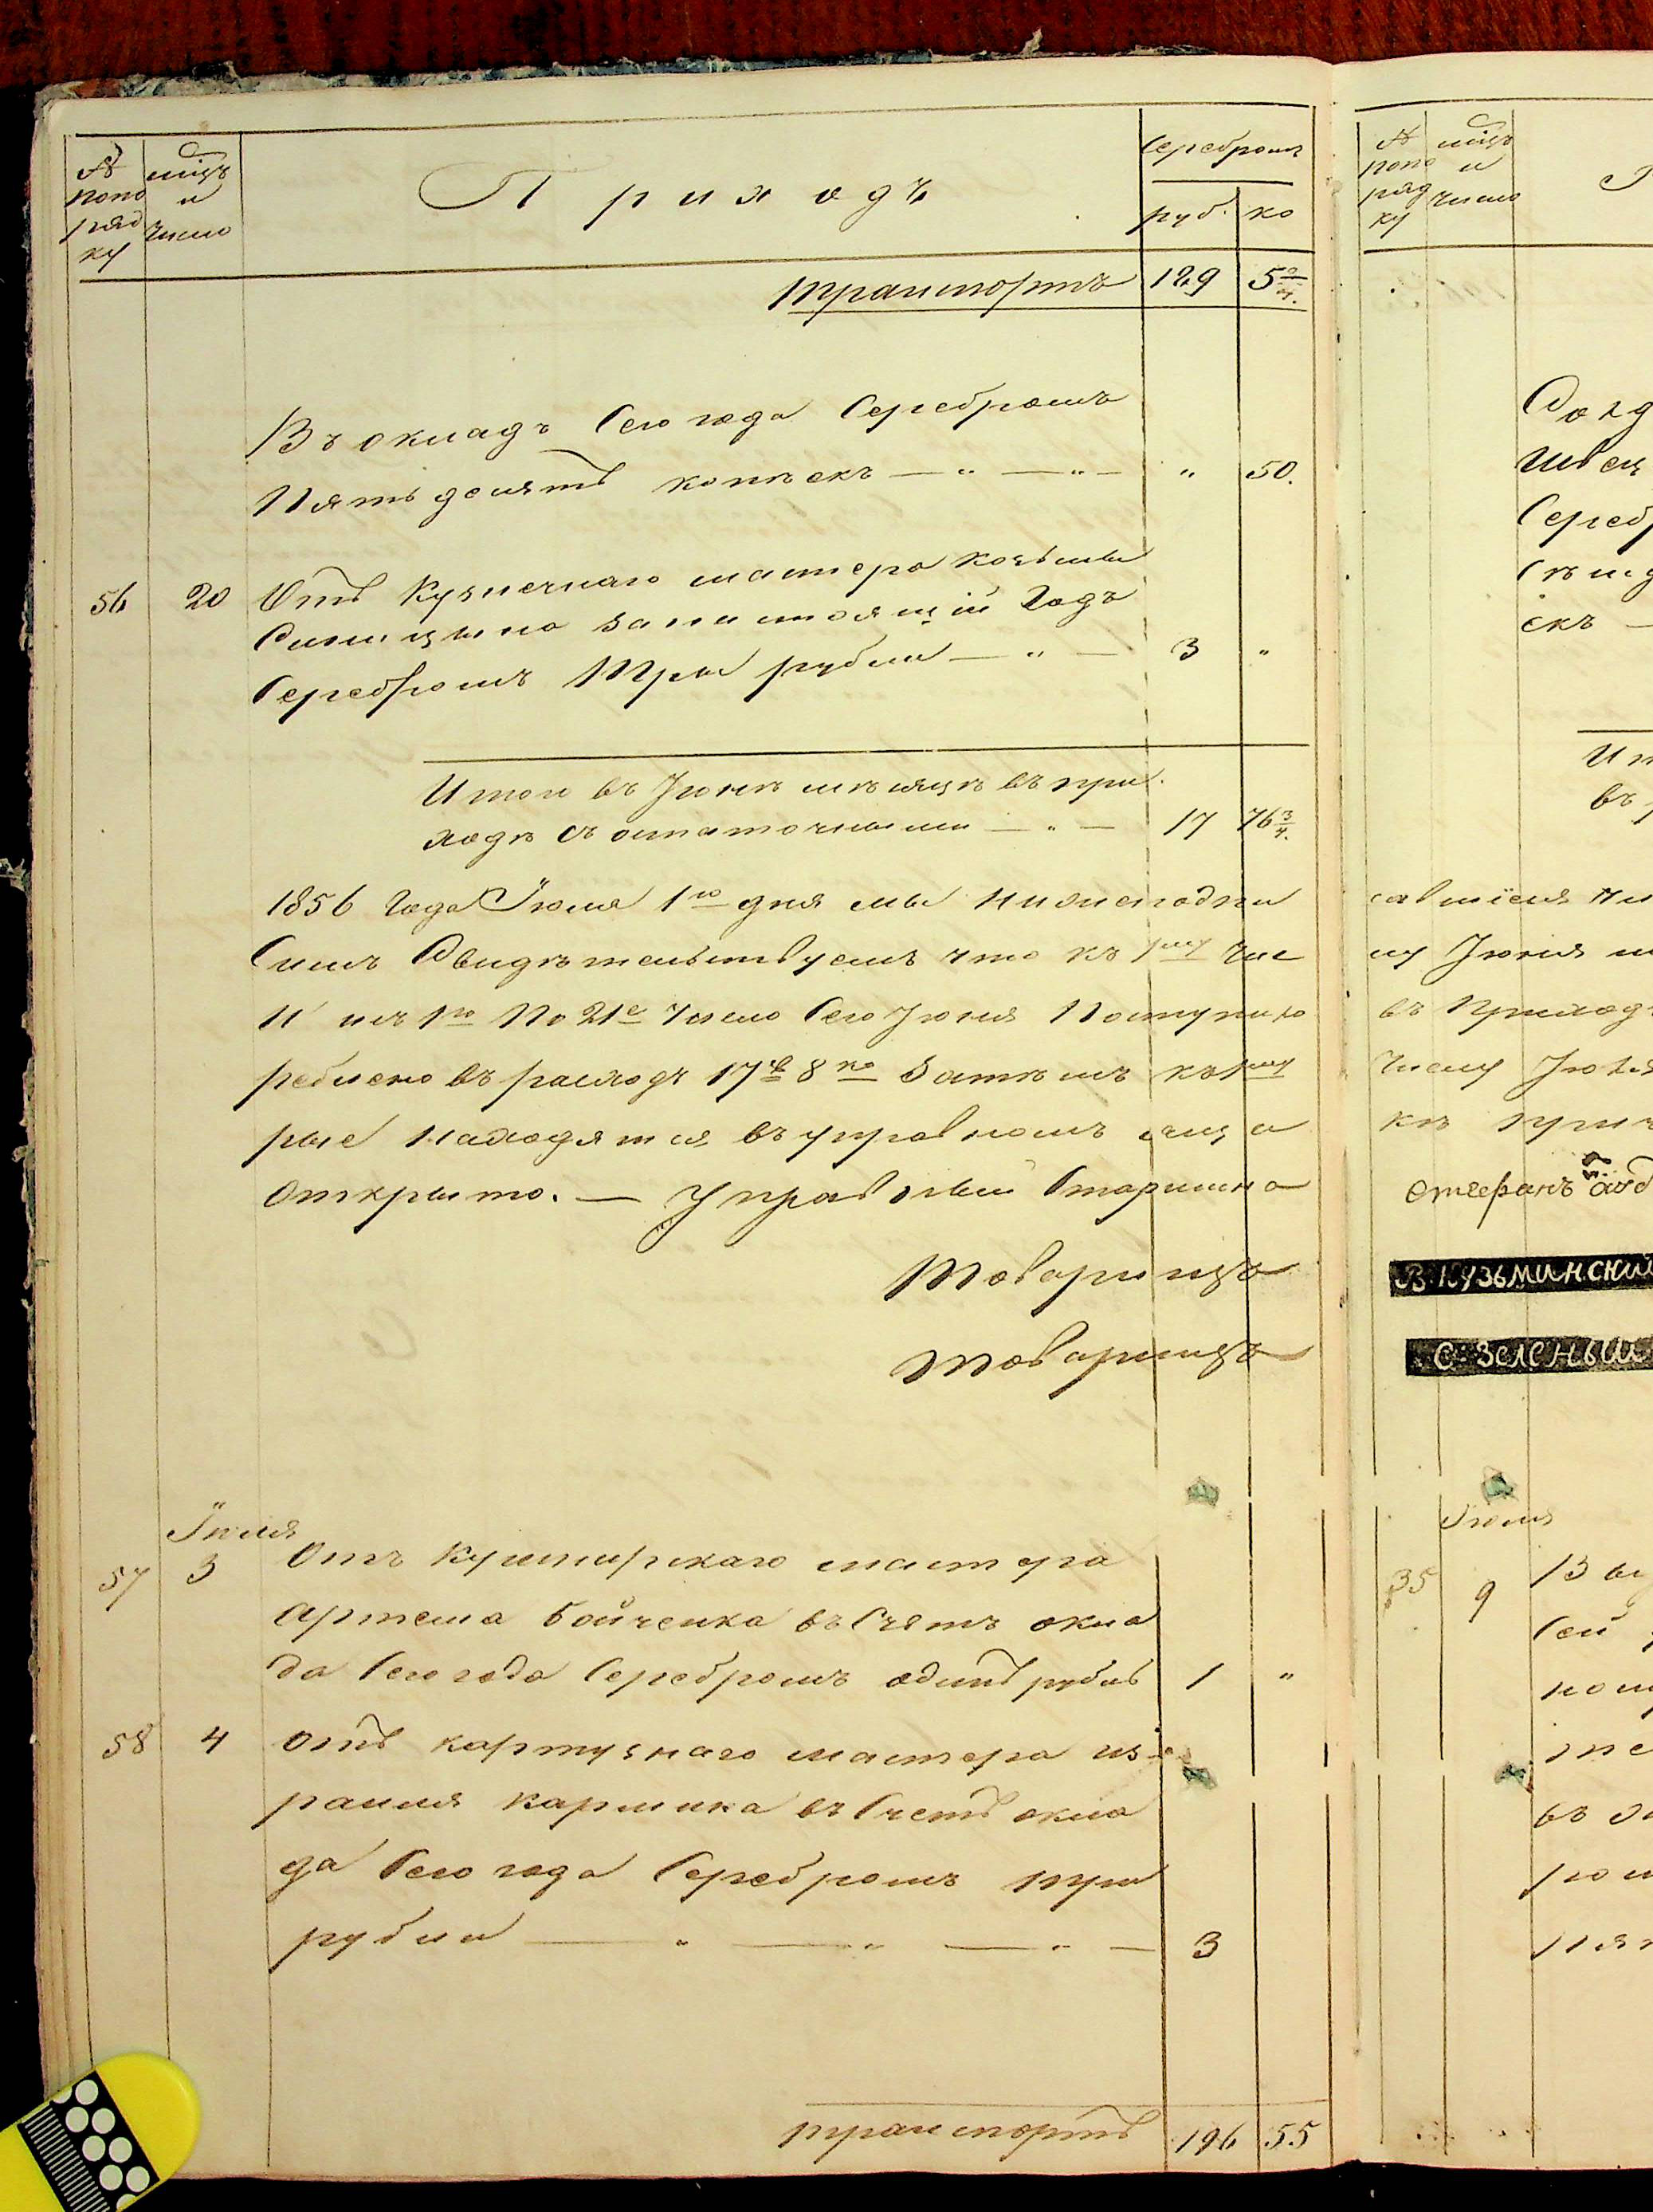 № попо ряд ку
мцъ и число
Приходъ
Серебромъ
руб. ко
транспортъ 129 5 2/4.
Въ окладъ Сего года Серебромъ
Пять десятъ копѣекъ — " — " — " 50.
56 20 Отъ Кузнечнаго мастера Козьмы
Синицына за настоящій Годъ
Серебромъ Три рубли — " — 3 "
Итого въ Іюнѣ мѣсяцѣ въ при
ходѣ съ остаточными — " — 17 76 3/4.
1856 Года Іюля 1го дня мы
Симъ Свидѣтельствуемъ что къ 1му Чис
И съ 1го По 21е Число Сего Іюня Поступило
реблено въ расходъ 17 8 ко Затѣмъ къ 1му
рые находятся въ управномъ
открыто. — Управный Старшина
Товарищъ
Товарищъ
Іюля
57 3 Отъ Кушнирскаго мастера
Артема Бойченка въ Счетъ окла
да Сего года Серебромъ одинъ рубль 1 "
58 4 отъ картузнаго мастера Из
раиля Карлика въ Счетъ окла
да Сего года Серебромъ три
рубли — " — " — " — 3
транспортъ 196 55
№ попо ряд ку
мцъ и число
П
Сереб
екъ —
Ит
въ
му Іюня
въ Приход
Числу Іюля
къ
В. Кузьминский
С. Зеленый
Іюля
35 9
Сей
въ